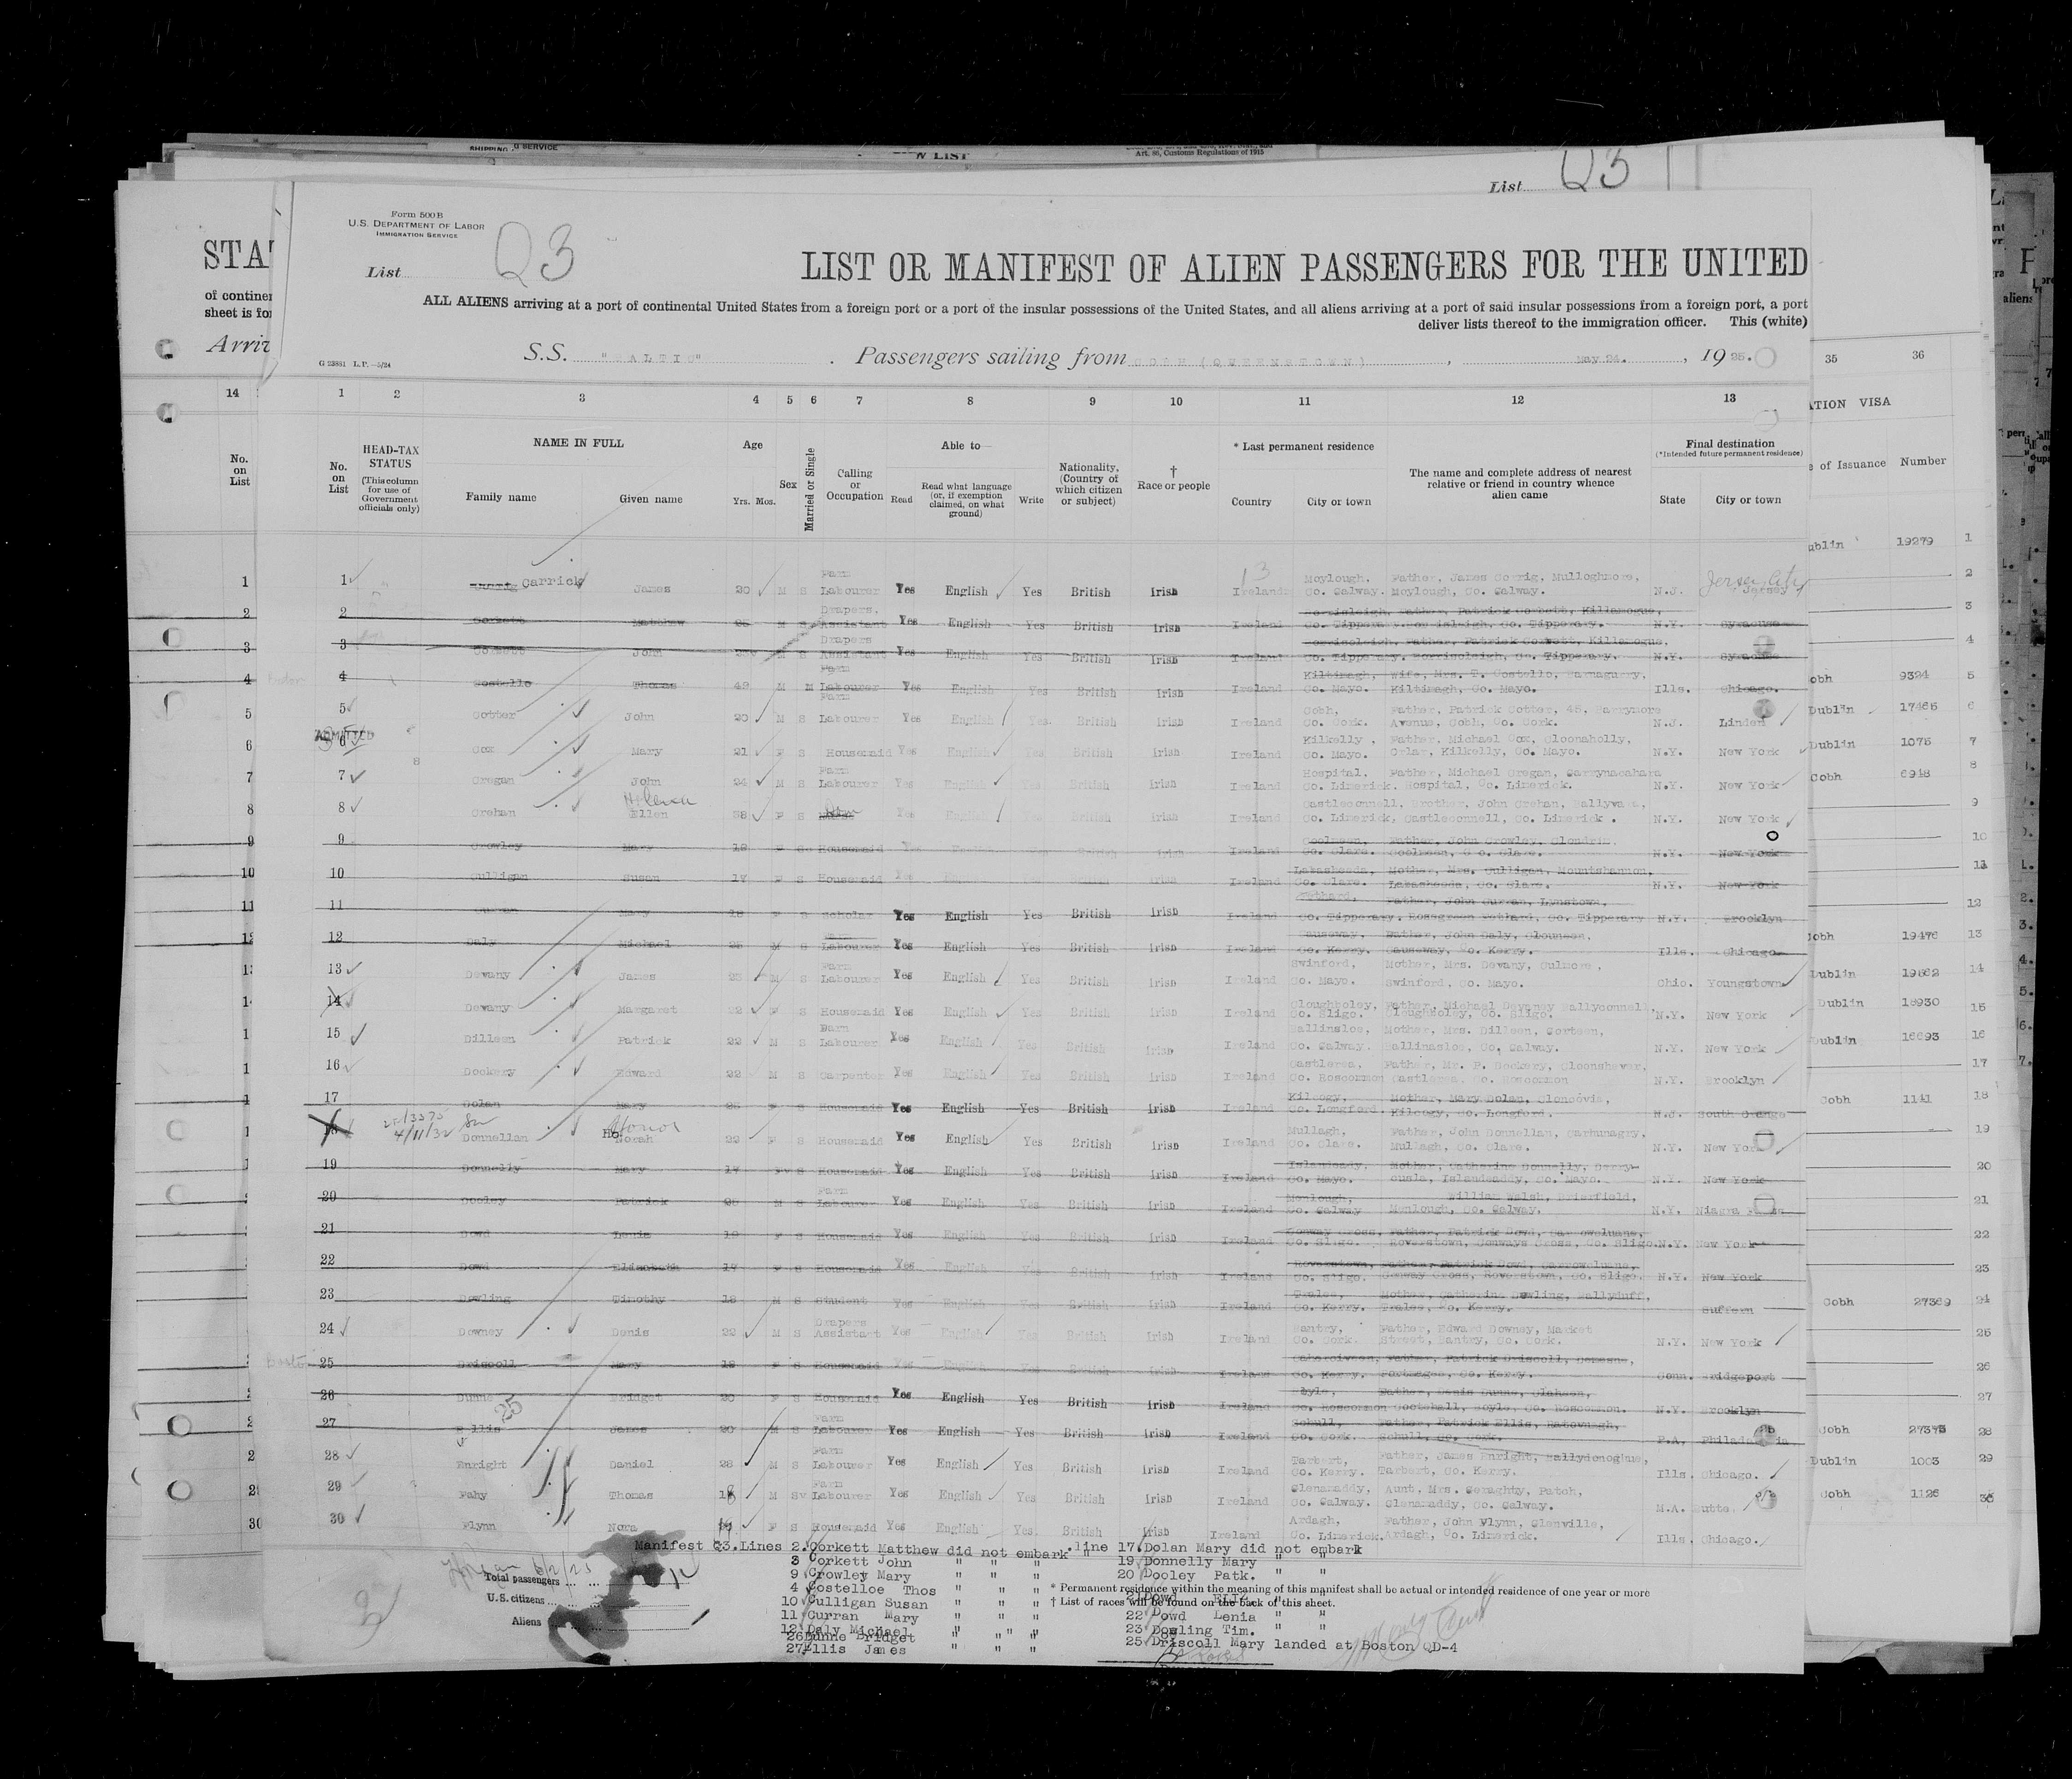 SHIPPING G SERVICE
W LIST
Art. 86, Customs Regulations of 1915
List Q3
Form 500 B
U.S. DEPARTMENT OF LABOR
IMMIGRATION SERVICE
List Q3
STAT
LIST OR MANIFEST OF ALIEN PASSENGERS FOR THE UNITED
of continen
sheet is for
ALL ALIENS arriving at a port of continental United States from a foreign port or a port of the insular possessions of the United States, and all aliens arriving at a port of said insular possessions from a foreign port, a port
deliver lists thereof to the immigration officer. This (white)
Arriv
S.S. "BALTIC" . Passengers sailing from COBH (QUEENSTOWN) , May 24. , 19 25.
G 23881 L.P.—5/24
14 1 2 3 4 5 6 7 8 9 10 11 12 13 35 36
ATION VISA
No. on List
No. on List
HEAD-TAX STATUS (This column for use of Government officials only)
NAME IN FULL
Family name Given name
Age Yrs. Mos.
Sex
Married or Single
Calling or Occupation
Able to—
Read Read what language (or, if exemption claimed, on what ground) Write
Nationality, (Country of which citizen or subject)
† Race or people
* Last permanent residence
Country City or town
The name and complete address of nearest relative or friend in country whence alien came
Final destination
(*Intended future permanent residence)
State City or town
e of Issuance Number
ublin 19279 1
1 Carrick James 20 M S Farm Labourer Yes English Yes British Irish Ireland Moylough, Co. Galway. Father, James Corrig, Mulloghmore, Moylough, Co. Galway. N.J. Jersey City
2 Corkett Matthew M S Drapers, Assistant Yes English Yes British Irish Ireland Borrisleigh, Co. Tipperary. Father, Patrick Corkett, Killamogue, Co. Tipperary. N.Y. Syracuse
3 Corkett John M S Drapers Assistant Yes English Yes British Irish Ireland Borrisoleigh, Co. Tipperary. Father, Patrick Corkett, Killamogue, Borrisoleigh, Co. Tipperary. N.Y. Syracuse
4 Costello Thomas 49 M M Farm Labourer Yes English Yes British Irish Ireland Kiltimagh, Co. Mayo. Wife, Mrs. T. Costello, Kiltimagh, Co. Mayo. Ills. Chicago.
5 Cotter John 20 M S Farm Labourer Yes English Yes British Irish Ireland Cobh, Co. Cork. Father, Patrick Cotter, 45, Barrymore Avenue, Cobh, Co. Cork. N.J. Linden
ADMITTED
6 Cox Mary 21 F S Housemaid Yes English Yes British Irish Ireland Kilkelly, Co. Mayo. Father, Michael Cox, Cloonaholly, Orlar, Kilkelly, Co. Mayo. N.Y. New York
7 Cregan John 24 M S Farm Labourer Yes English Yes British Irish Ireland Hospital, Co. Limerick. Father, Michael Cregan, Garrynacahara Hospital, Co. Limerick. N.Y. New York
8 Crehan Helena Ellen 38 F S Yes English Yes British Irish Ireland Castleconnell, Co. Limerick, Brother, John Crehan, Ballyvara, Castleconnell, Co. Limerick. N.Y. New York
9 Crowley Mary 18 F S Housemaid Yes English Yes British Irish Ireland Coolmeen, Co. Clare. Father, John Crowley, Clondrin, Coolmeen, Co. Clare. N.Y. New York
10 Culligan Susan 17 F S Housemaid Yes Ireland Labasheeda, Co. Clare. Mother, Mrs. Culligan, Mountshannon, Labasheeda, Co. Clare. N.Y. New York
11 Curran Mary 18 F S Scholar Yes English Yes British Irish Ireland Fethard, Co. Tipperary. Father, John Curran, Lynstown, Rosegreen Fethard, Co. Tipperary N.Y. Brooklyn
12 Daly Michael 25 M S Farm Labourer Yes English Yes British Irish Ireland Causeway, Co. Kerry. Father, John Daly, Clounmen, Causeway, Co. Kerry. Ills. Chicago
13 Devany James 23 M S Farm Labourer Yes English Yes British Irish Ireland Swinford, Co. Mayo. Mother, Mrs. Devany, Culmore, Swinford, Co. Mayo. Ohio. Youngstown
14 Devany Margaret 22 F S Housemaid Yes English Yes British Irish Ireland Cloughboley, Co. Sligo. Father, Michael Devaney Ballyconnell, Cloughboley, Co. Sligo. N.Y. New York
15 Dilleen Patrick 22 M S Farm Labourer Yes English Yes British Irish Ireland Ballinsloe, Co. Galway. Mother, Mrs. Dilleen, Gorteen, Ballinasloe, Co. Galway. N.Y. New York
16 Dockery Edward 22 M S Carpenter Yes English Yes British Irish Ireland Castlerea, Co. Roscommon Father, Mr. P. Dockery, Cloonshever, Castlerea, Co. Roscommon N.Y. Brooklyn
17 Dolan Mary 25 F S Housemaid Yes English Yes British Irish Ireland Kilcogy, Co. Longford. Mother, Mary Dolan, Cloncovia, Kilcogy, Co. Longford. N.J. South Orange
18 4/11/32 Donnellan Honor Norah 22 F S Housemaid Yes English Yes British Irish Ireland Mullagh, Co. Clare. Father, John Donnellan, Carhunagry, Mullagh, Co. Clare. N.Y. New York
19 Donnelly Mary 17 F S Housemaid Yes English Yes British Irish Ireland Islandeady, Co. Mayo. Mother, Catherine Donnelly, Derrycusla, Islandeaddy, Co. Mayo. N.Y. New York
20 Dooley Patrick 25 M S Farm Labourer Yes English Yes British Irish Ireland Menlough, Co. Galway William Walsh, Brierfield, Menlough, Co. Galway. N.Y. Niagra Falls
21 Dowd Lenia 19 F S Housemaid Yes English Yes British Irish Ireland Conway Cross, Co. Sligo. Father, Patrick Dowd, Carroweluane, Roverstown, Conways Cross, Co. Sligo. N.Y. New York
22 Dowd Elizabeth 17 F S Housemaid Yes English Yes British Irish Ireland Roverstown, Co. Sligo. Father, Patrick Dowd, Carroweluane, Conway Cross, Roverstown, Co. Sligo. N.Y. New York
23 Dowling Timothy 18 M S Student Yes English Yes British Irish Ireland Tralee, Co. Kerry. Mother, Catherine Dowling, Ballyduff, Tralee, Co. Kerry. Suffern
24 Downey Denis 22 M S Drapers Assistant Yes English Yes British Irish Ireland Bantry, Co. Cork. Father, Edward Downey, Market Street, Bantry, Co. Cork. N.Y. New York
Boston 25 Driscoll Mary 18 F S Housemaid Yes English Yes British Irish Ireland Caherciveen, Co. Kerry. Father, Patrick Driscoll, Co. Kerry. Conn. Bridgeport
26 Dunne Bridget 20 F S Housemaid Yes English Yes British Irish Ireland Boyle, Co. Roscommon Father, Denis Dunne, Cootehall, Boyle, Co. Roscommon. N.Y. Brooklyn
25
27 Ellis James 20 M S Farm Labourer Yes English Yes British Irish Ireland Schull, Co. Cork. Father, Patrick Ellis, Ratovnagh, Schull, Co. Cork. P.A. Philadelphia
28 Enright Daniel 28 M S Farm Labourer Yes English Yes British Irish Ireland Tarbert, Co. Kerry. Father, James Enright, Ballydonoghue, Tarbert, Co. Kerry. Ills. Chicago.
29 Fahy Thomas 18 M S Farm Labourer Yes English Yes British Irish Ireland Glenamaddy, Co. Galway. Aunt, Mrs. Geraghty, Patch, Glenamaddy, Co. Galway. M.A. Butte.
30 Flynn Nora F S Housemaid Yes English Yes British Irish Ireland Ardagh, Co. Limerick. Father, John Flynn, Glenville, Ardagh, Co. Limerick. Ills. Chicago.
obh 9324 5
Dublin 17465 6
Dublin 1075 7
Cobh 6918 8
Cobh 19476 13
Dublin 19862 14
Dublin 18930 15
Dublin 16693 16
Cobh 1141 18
Cobh 27369 24
Cobh 27375 28
Dublin 1003 29
Cobh 1126
Manifest Q3. Lines 2. Corkett Matthew did not embark " line 17. Dolan Mary did not embark
3 Corkett John " " " 19 Donnelly Mary " "
9 Crowley Mary " " " 20 Dooley Patk. " "
4 Costelloe Thos " " " 21 Dowd ELIZ. " "
10 Culligan Susan " " " 22 Dowd Lenia " "
11 Curran Mary " " " 23 Dowling Tim. " "
12 Daly Michael " " " 25 Driscoll Mary landed at Boston QD-4
26 Dunne Bridget " " "
27 Ellis James " " "
6/2/25
Total passengers
U.S. citizens
Aliens
* Permanent residence within the meaning of this manifest shall be actual or intended residence of one year or more
† List of races will be found on the back of this sheet.